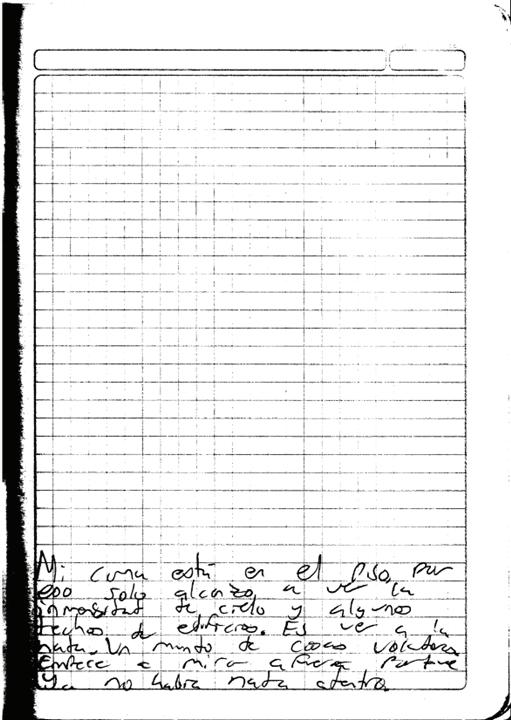 Mi cama está en el piso, por
eso solo alcanzo a ver la
inmensidad de cielo y algunos
techos de edificios. Es ver a la
nada. Un mundo de cosas voladoras
Empece a mirar afuera porque
Ya no habia nada adentro